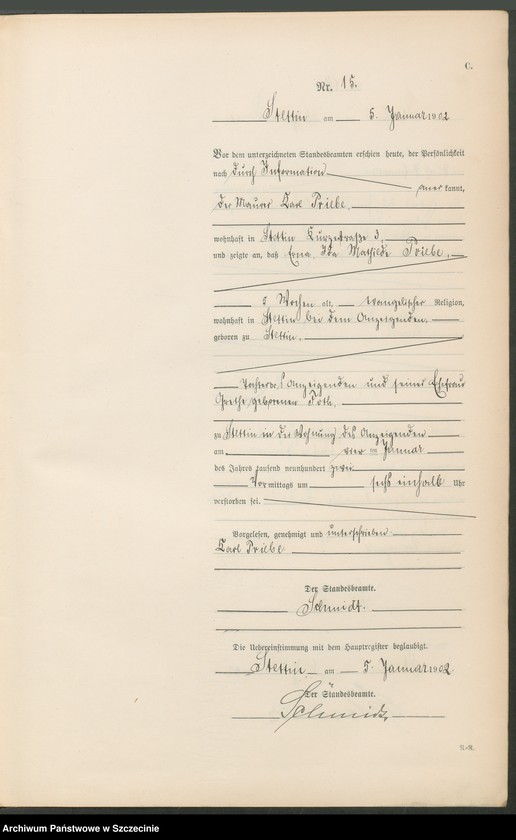 C.
Nr. 15.
Stettin am 5. Januar 1902
Vor dem unterzeichneten Standesbeamten erschien heute, der Persönlichkeit
nach durch Information
aner kannt,
der Maurer Carl Priebe,
wohnhaft in Stettin Kurzestraße 3,
und zeigte an, daß Erna Ida Mathilde Priebe,
5 Wochen alt, evangelischer Religion,
wohnhaft in Stettin bei dem Anzeigenden,
geboren zu Stettin,
Tochter des Anzeigenden und seiner Ehefrau
Grethe geborenen Poth,
zu Stettin in der Wohnung des Anzeigenden
am vier ten Januar
des Jahres tausend neunhundert zwei
Vor mittags um sechs einhalb Uhr
verstorben sei.
Vorgelesen, genehmigt und unterschrieben
Carl Priebe
Der Standesbeamte.
Schmidt.
Die Uebereinstimmung mit dem Hauptregister beglaubigt.
Stettin, am 5. Januar 1902
Der Standesbeamte.
Schmidt.
Archiwum Państwowe w Szczecinie